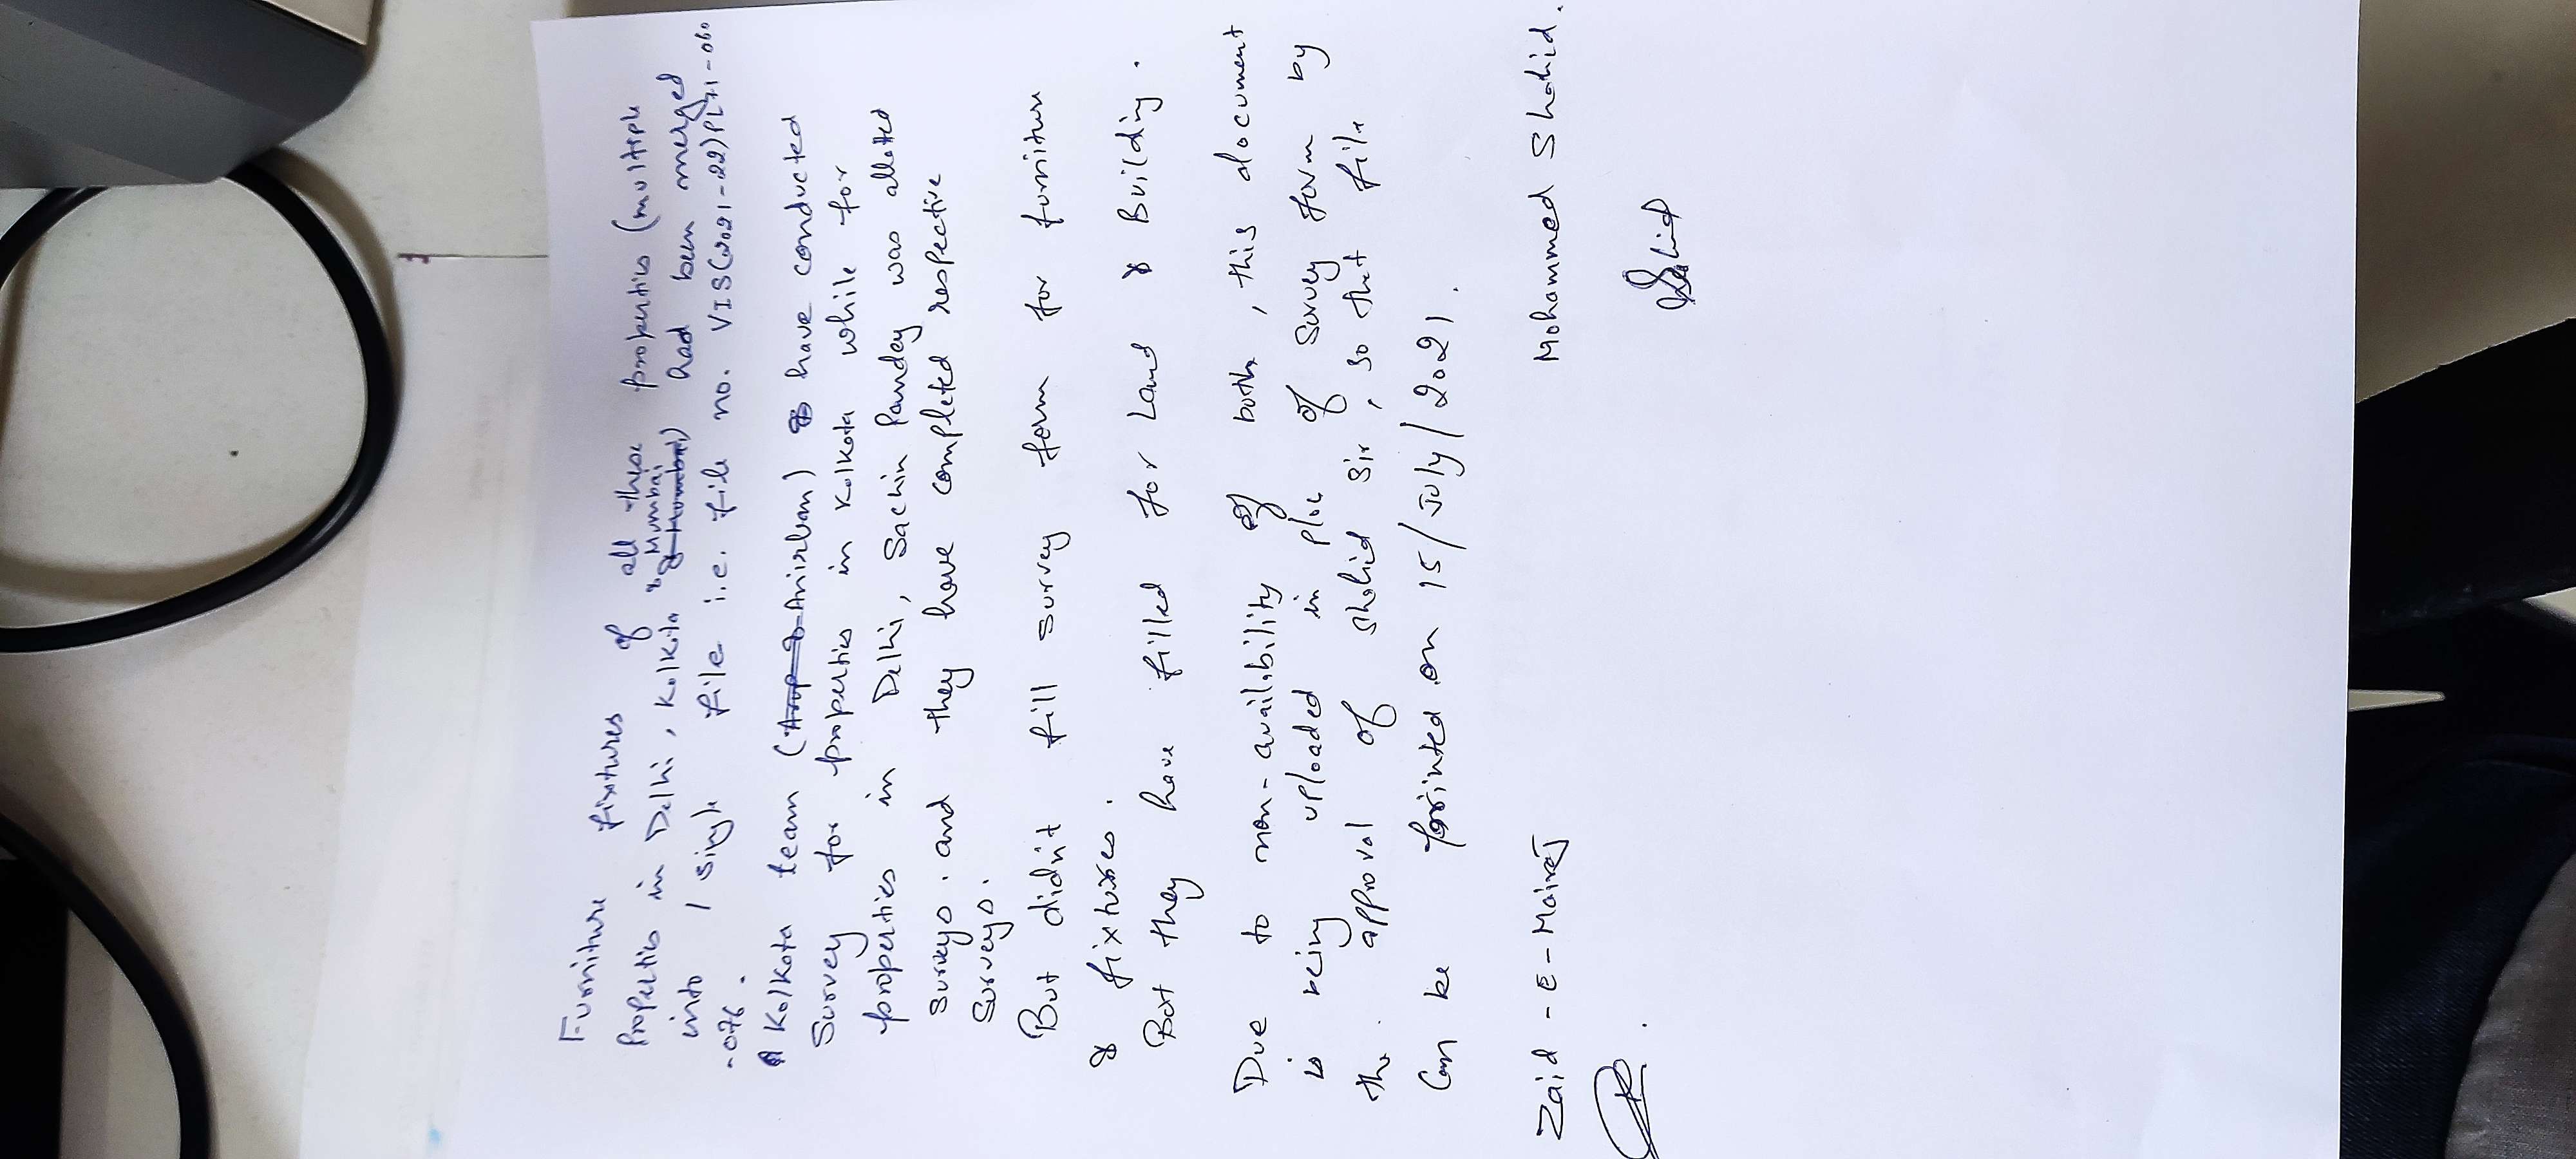 Furniture fixtures of all these properties (multiple
Properties in Delhi, Kolkata & Mumbai) had been merged
into 1 single file i.e. file no. VIS(2021-22)PL71-060
-076.
Kolkota team (Anirban) have conducted
Survey for properties in Kolkata while for
properties in Delhi, Sachin Pandey was alloted
surveys. and they have completed respective
surveys.
But didn't fill survey form for furniture
& fixtures.
But they have filled for Land & Building.
Due to non-availability of both, this document
is being uploaded in place of survey form by
the approval of Shahid Sir, so that file
can be printed on 15/July/2021.
Zaid-E-Mairaj Mohammed Shahid.
Shahid